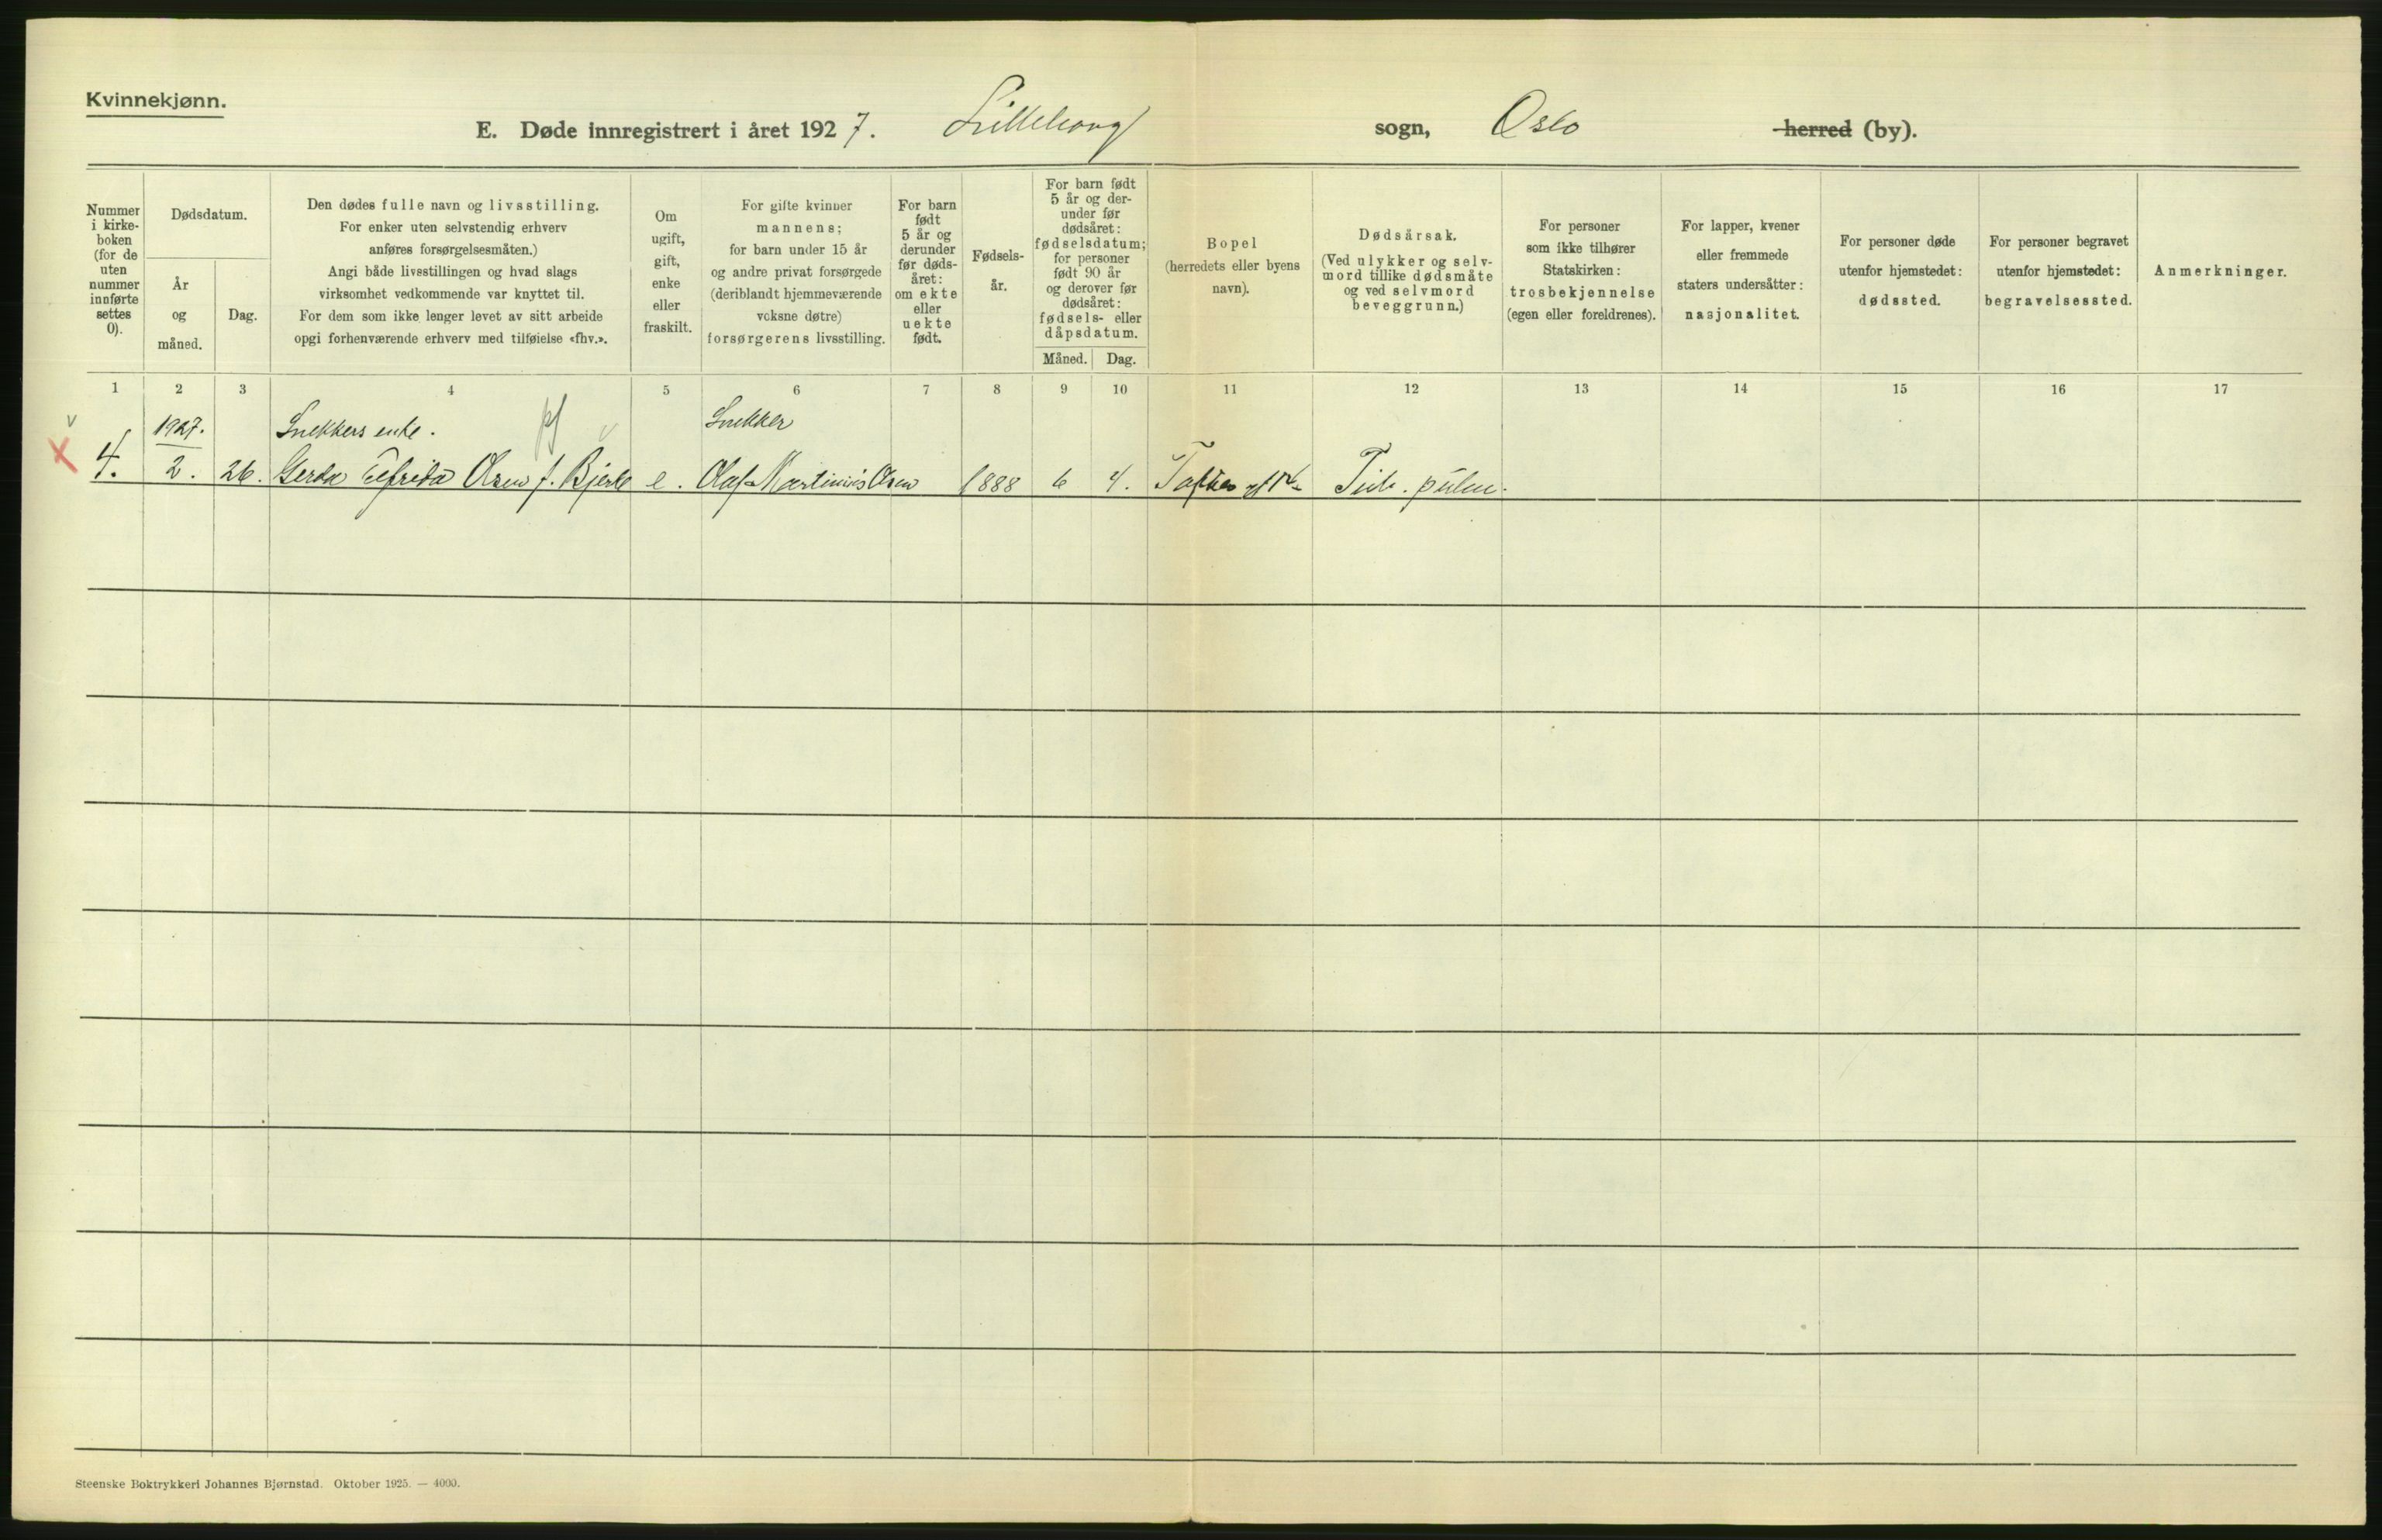 Kvinnekjønn.
E. Døde innregistrert i året 1927. Lilleborg sogn, Oslo herred (by).
Nummer
i kirke-
boken
(for de
uten
nummer
innførte
settes
0).
Dødsdatum.
År
og
måned.
Dag.
Den dødes fulle navn og livsstilling.
For enker uten selvstendig erhverv
anføres forsørgelsesmåten.)
Angi både livsstillingen og hvad slags
virksomhet vedkommende var knyttet til.
For dem som ikke lenger levet av sitt arbeide
opgi forhenværende erhverv med tilføielse «fhv.».
Om
ugift,
gift,
enke
eller
fraskilt.
For gifte kvinner
mannens;
for barn under 15 år
og andre privat forsørgede
(deriblandt hjemmeværende
voksne døtre)
forsørgerens livsstilling.
For barn
født
5 år og
derunder
før døds-
året:
om ekte
eller
uekte
født.
Fødsels-
år.
For barn født
5 år og der-
under før
dødsåret:
fødselsdatum;
for personer
født 90 år
og derover før
dødsåret:
fødsels- eller
dåpsdatum.
Måned. Dag.
Bopel
(herredets eller byens
navn).
Dødsårsak.
(Ved ulykker og selv-
mord tillike dødsmåte
og ved selvmord
beveggrunn.)
For personer
som ikke tilhører
Statskirken:
trosbekjennelse
(egen eller foreldrenes).
For lapper, kvener
eller fremmede
staters undersåtter:
nasjonalitet.
For personer døde
utenfor hjemstedet:
dødssted.
For personer begravet
utenfor hjemstedet:
begravelsessted.
Anmerkninger.
1 2 3 4 5 6 7 8 9 10 11 12 13 14 15 16 17
1927. Snekkers enke. Snekker
4. 2. 26. Gerda Olsen f. Bjerke e. Olaf Martinius Olsen 1888 6 4. Tub. pulm.
Steenske Boktrykkeri Johannes Bjørnstad. Oktober 1925. — 4000.